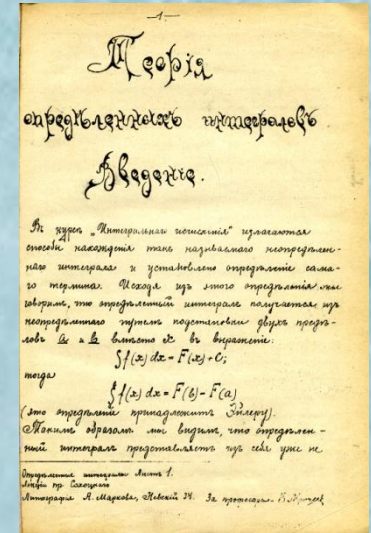 — 1 —
Теорія
опредѣленныхъ интеграловъ.
Введеніе.
Въ курсѣ „Интегральнаго исчисленія" излагаются
способы нахожденія такъ называемаго неопредѣлен-
наго интеграла и установлено опредѣленіе сама-
го термина. Исходя изъ этого опредѣленія мы
говоримъ, что опредѣленный интегралъ получается изъ
неопредѣленнаго путемъ подстановки двухъ предѣ-
ловъ a и b вмѣсто x въ выраженіе:
∫f(x) dx = F(x) + C;
тогда
∫f(x) dx = F(b) - F(a)
(это опредѣленіе принадлежитъ Эйлеру).
Такимъ образомъ мы видимъ, что опредѣлен-
ный интегралъ представляетъ изъ себя уже не
Опредѣленные интегралы Листъ 1.
Лекціи пр. Сохоцкаго
Литографія Я. Маркова, Невскій 34. За профессора